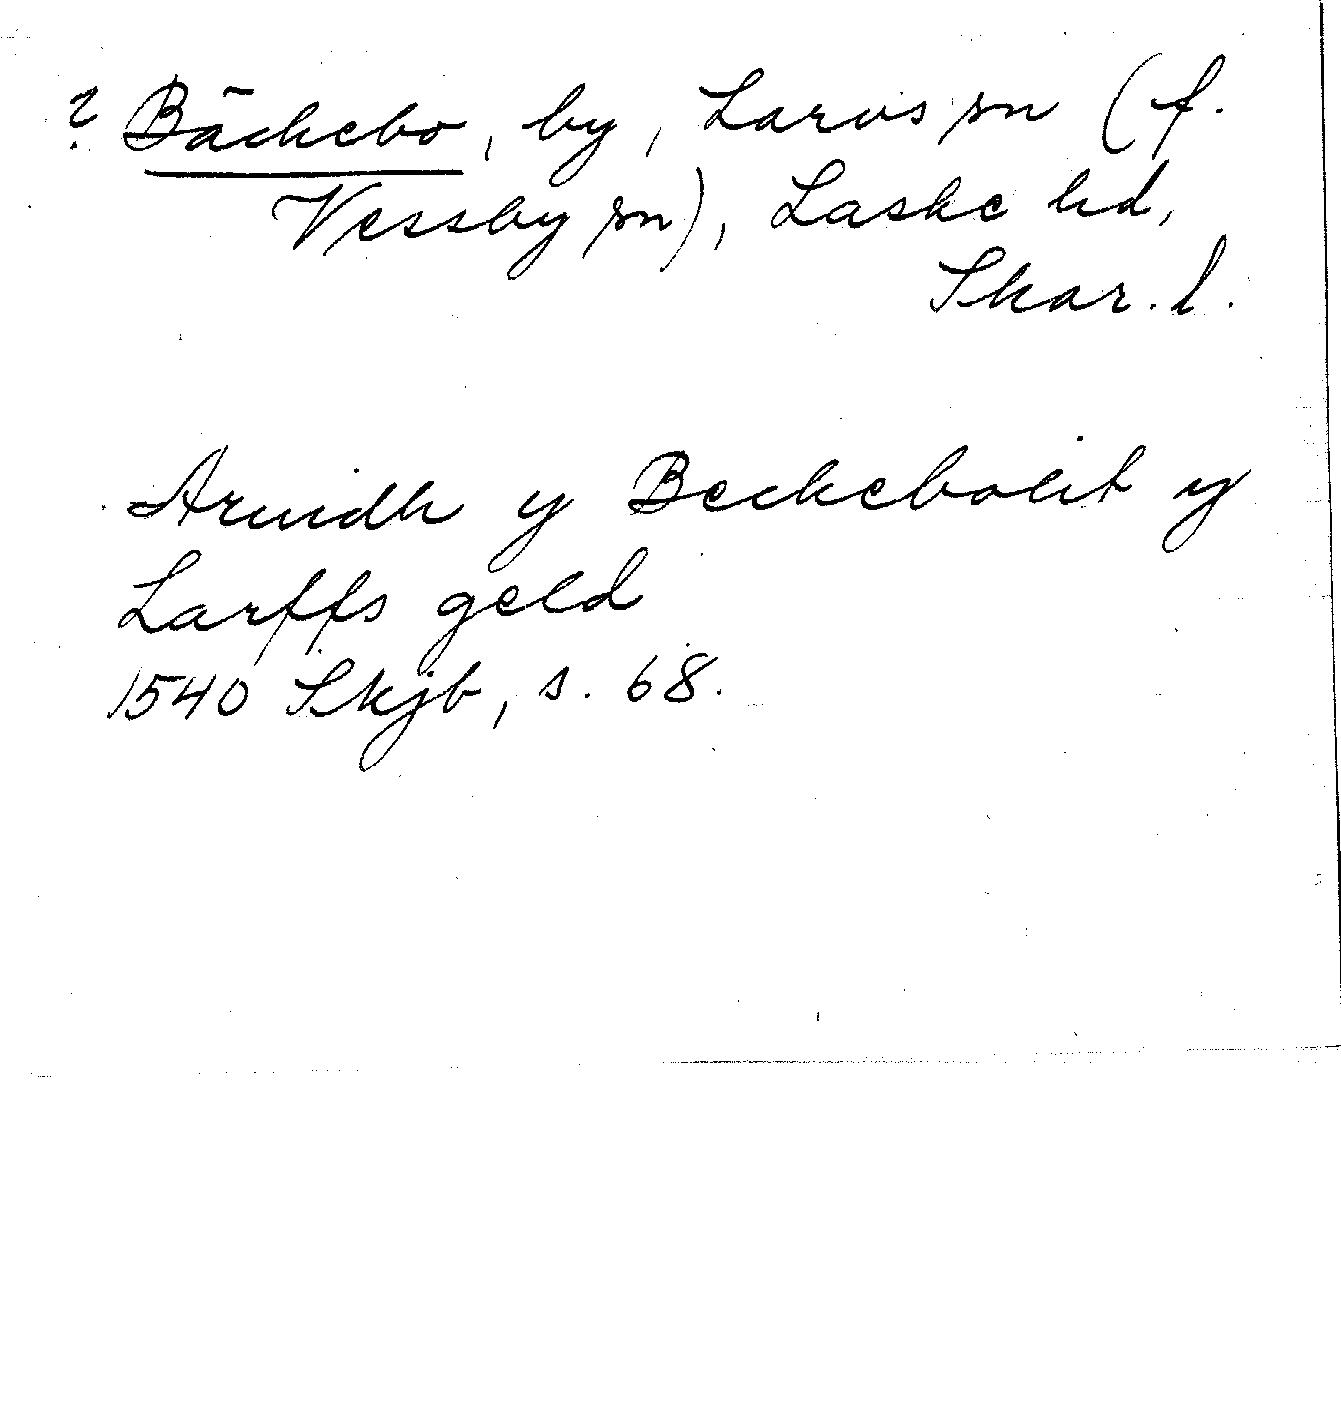 ? Bäckebo, by, Larvs sn (f.
Vessby sn), Laske hd,
Skar. l.
Aruidh y Beckebolit y
Larffs geld
1540 Skjb, s. 68.